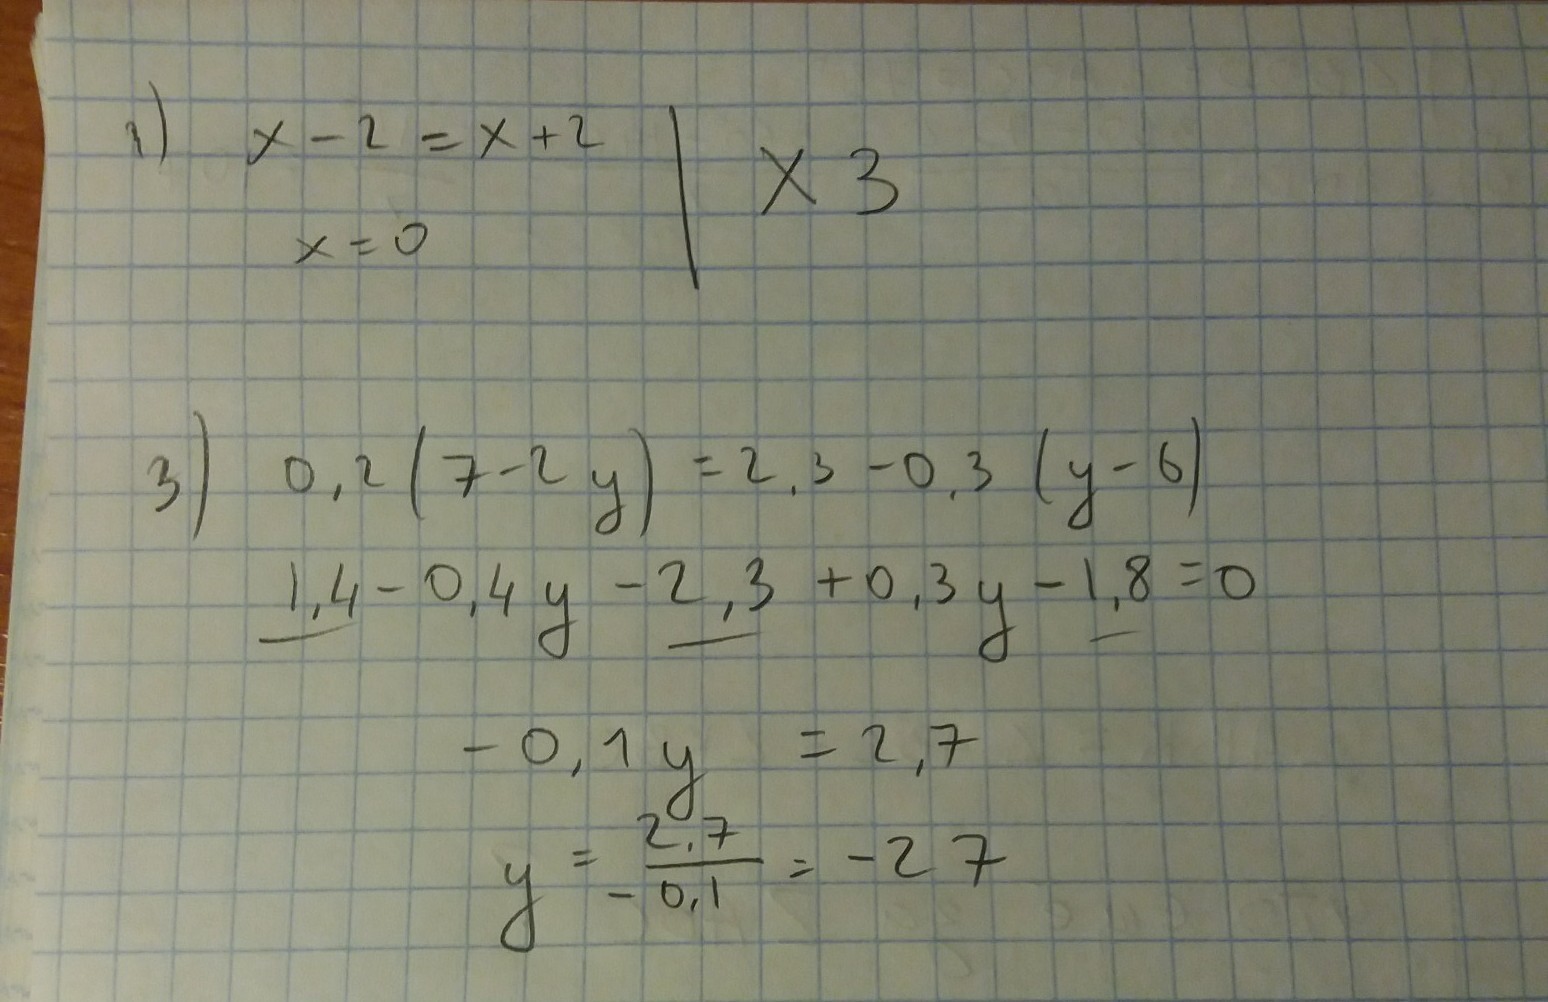 1) x - 2 = x + 2 | X 3
x = 0
3) 0,2 (7 - 2y) = 2,3 - 0,3 (y - 6)
1,4 - 0,4y - 2,3 + 0,3y - 1,8 = 0
- 0,1y = 2,7
y = 2,7 / - 0,1 = - 27